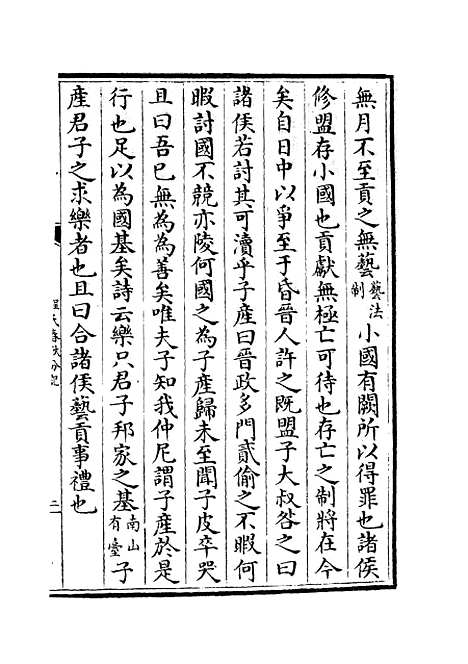 無月不至貢之無藝藝法制小國有闕所以得罪也諸侯
修盟存小國也貢獻無極亡可待也存亡之制將在今
矣自日中以爭至于昏晉人許之既盟子大叔咎之曰
諸侯若討其可瀆乎子產曰晉政多門貳偷之不暇何
暇討國不競亦陵何國之為子產歸未至聞子皮卒哭
且曰吾已無為為善矣唯夫子知我仲尼謂子產於是
行也足以為國基矣詩云樂只君子邦家之基南山有臺子
產君子之求樂者也且曰合諸侯藝貢事禮也
程氏春秋分記